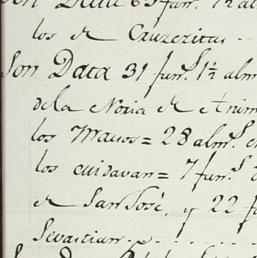 Son Data 63 fun.s 1½ al
los de Cruzeritas..
Son Data 31 fun.s 1½ alm
de la Noria de Anim
los Macios = 28 alm.s e
los cuidavan = 7 fun.s
de San José, y 22 f
Sevastian